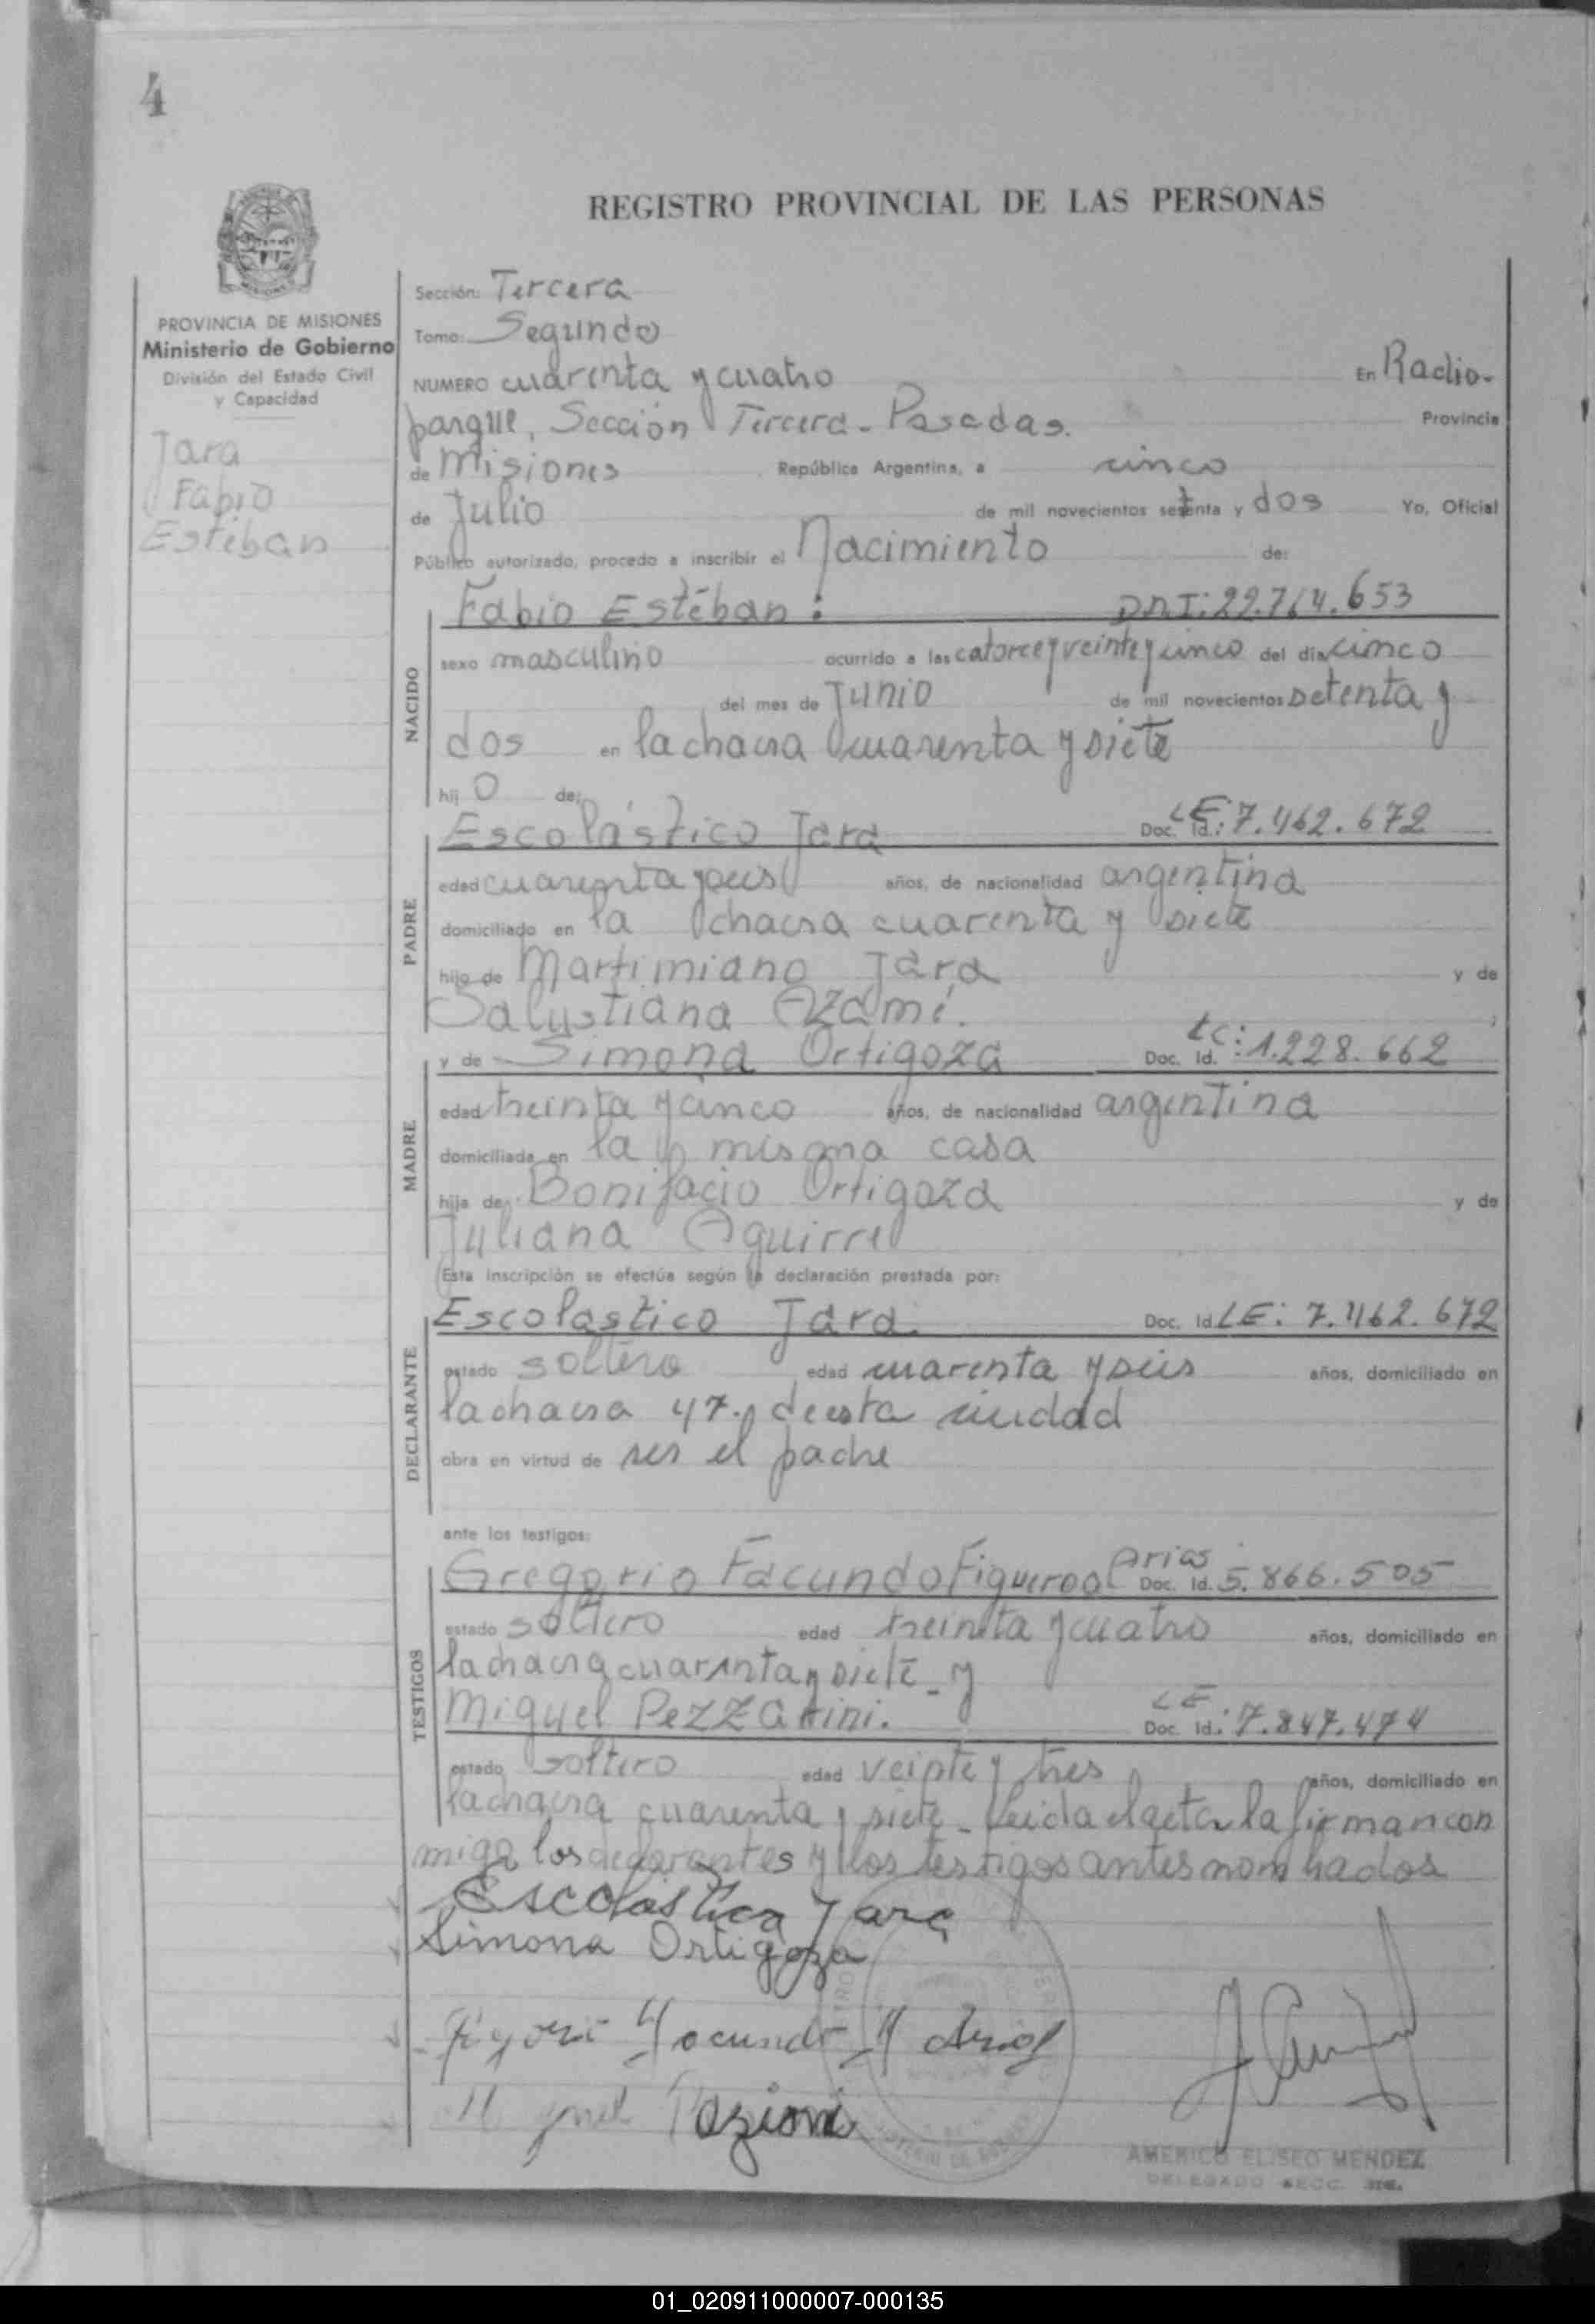 4
REGISTRO PROVINCIAL DE LAS PERSONAS
PROVINCIA DE MISIONES
Ministerio de Gobierno
División del Estado Civil
y Capacidad
Jara
Fabio
Estéban
Sección: Tercera
Tomo: Segundo
NUMERO cuarenta y cuatro En Radio-
parque, Sección Tercera - Posadas. Provincia
de Misiones República Argentina, a cinco
de Julio de mil novecientos setenta y dos Yo, Oficial
Público autorizado, procedo a inscribir el Nacimiento de:
Fabio Estéban: DNI: 22.764.653
NACIDO
sexo masculino ocurrido a las catorce y veinte y cinco del día cinco
del mes de Junio de mil novecientos setenta y
dos en la chacra cuarenta y siete
hij o de:
Escolástico Jara Doc. Id.: LE: 7.462.672
PADRE
edad cuarenta y seis años, de nacionalidad argentina
domiciliado en la chacra cuarenta y siete
hijo de Martimiano Jara y de
Salustiana
y de Simona Ortigoza Doc. Id. LC: 1.228.662
MADRE
edad treinta y cinco años, de nacionalidad argentina
domiciliada en la misma casa
hija de Bonifacio Ortigoza y de
Juliana Aguirre
Esta inscripción se efectúa según la declaración prestada por:
Escolastico Jara. Doc. Id LE: 7.462.672
DECLARANTE
estado soltero edad cuarenta y seis años, domiciliado en
la chacra 47. de esta ciudad
obra en virtud de ser el padre
ante los testigos:
Gregorio Facundo Figueroa Arias Doc. Id. 5.866.505
TESTIGOS
estado soltero edad treinta y cuatro años, domiciliado en
la chacra cuarenta y siete - y
Miguel Pezzarini. LE Doc. Id.: 7.847.474
estado soltero edad veinte y tres años, domiciliado en
la chacra cuarenta y siete - Leida el acta la firman con
migo los declarantes y los testigos antes nombrados
Escolastico Jara
Simona Ortigoza
AMERICO ELISEO MENDEZ
DELEGADO SECC. 3ra.
01_020911000007-000135